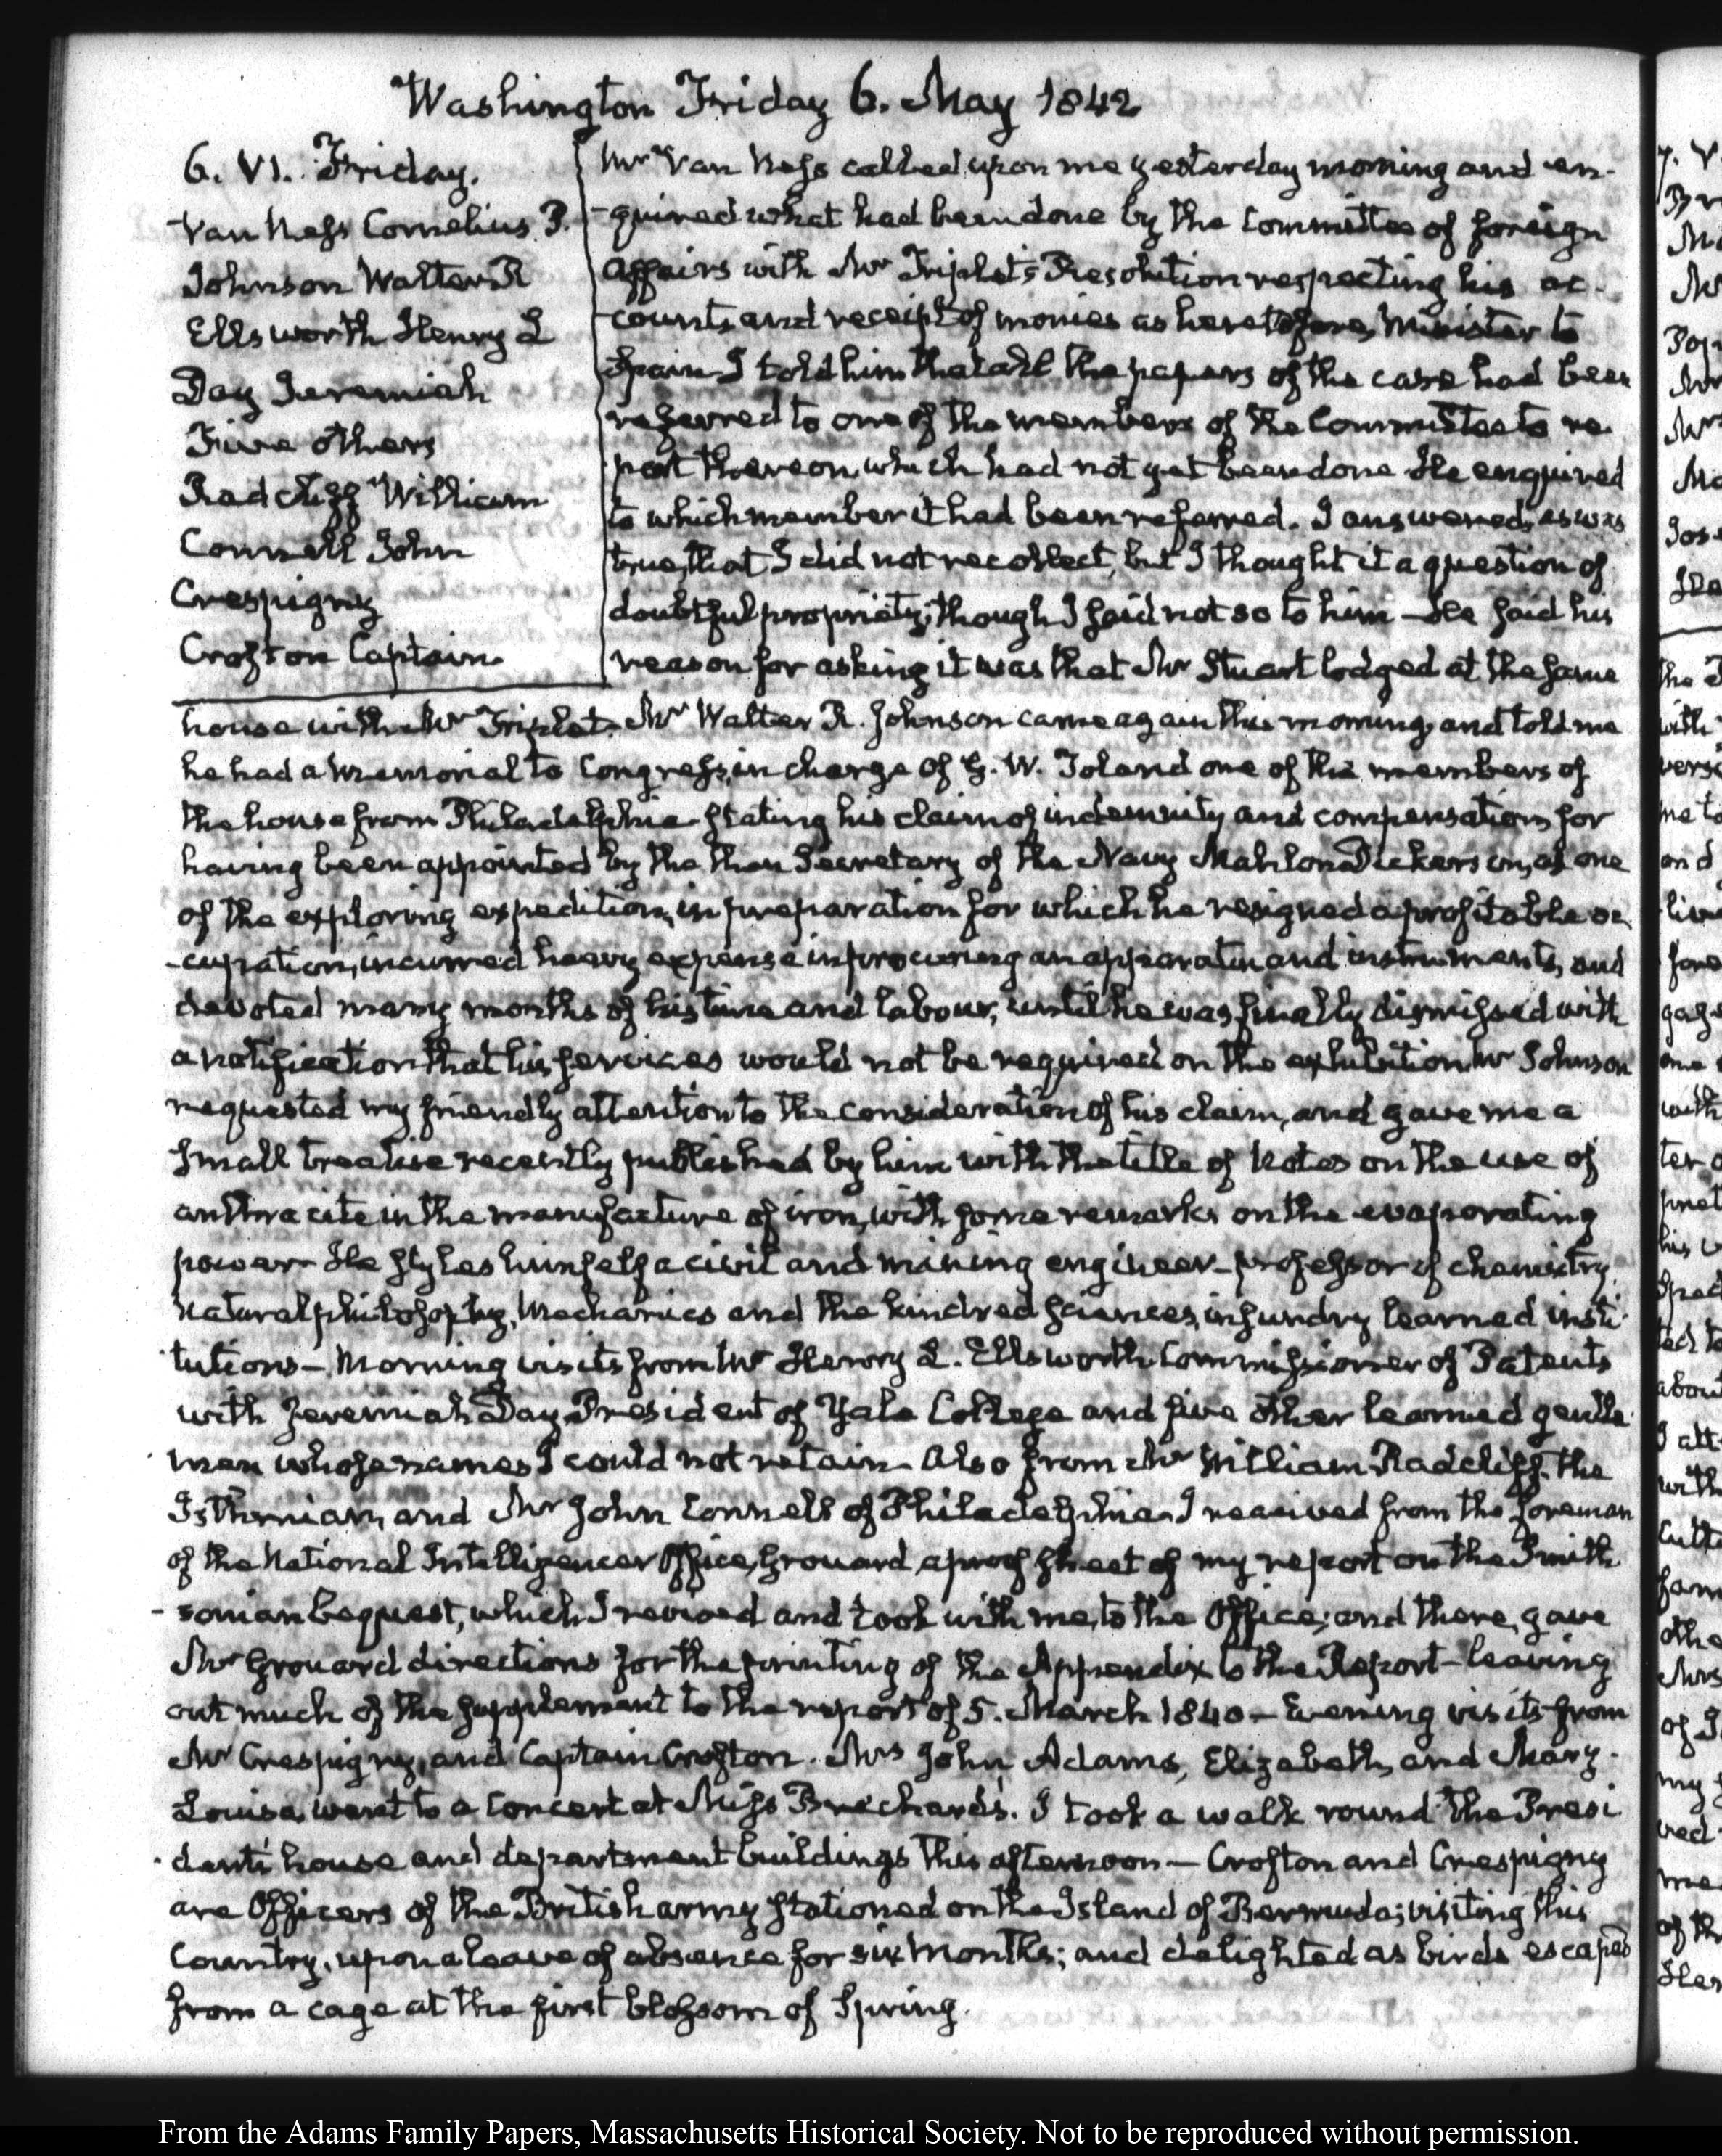 Washington Friday 6. May 1842
6. VI. Friday.
Van Ness Cornelius P.
Johnson Walter R
Ellsworth Henry L
Day Jeremiah
Five others
Radcliff William
Connell John
Crespigny
Crofton Captain
Mr Van Ness called upon me yesterday morning and en-
-quired what had been done by the Committee of foreign
Affairs with Mr Triplet's Resolution respecting his ac-
-counts and receipt of monies as heretofore, Minister to
Spain. I told him that all the papers of the case had been
referred to one of the members of the Committee to re-
port thereon, which had not yet been done. He enquired
to which member it had been referred. I answered, as was
true, that I did not recollect, but I thought it a question of
doubtful propriety; though I said not so to him — He said his
reason for asking it was that Mr Stuart lodged at the same
house with Mr Triplet. Mr Walter R. Johnson came again this morning, and told me
he had a memorial to Congress, in charge of G. W. Toland one of the members of
the house from Philadelphia stating his claim of indemnity and compensation, for
having been appointed by the then Secretary of the Navy Mahlon Dickerson, as one
of the exploring expedition, in preparation for which he resigned a profitable oc
-cupation, incurred heavy expense in procuring an apparatus and instruments, and
devoted many months of his time and labour, until he was finally dismissed with
a notification that his services would not be required on the exhibition Mr Johnson
requested my friendly attention to the consideration of his claim, and gave me a
small treatise recently published by him with the title of Notes on the use of
anthracite in the manufacture of iron, with some remarks on the evaporating
power. He styles himself a civil and mining engineer - professor of chemistry,
Natural philosophy, Mechanics and the kindred sciences, in sundry learned insti-
tutions — Morning visits from Mr Henry L. Ellsworth Commissioner of Patents
with Jeremiah Day President of Yale College and five other learned gentle-
men whose names I could not retain. Also from Mr William Radcliff, the
Isthmian, and Mr John Connell of Philadelphia. I received from the foreman
of the National Intelligencer Office, Grouard, a proof sheet of my report on the Smith-
-sonian bequest, which I revised and took with me, to the Office; and there, gave
Mr Grouard directions for the printing of the Appendix to the Report — leaving
out much of the supplement to the report of 5. March 1840 — Evening visits from
Mr Crespigny, and Captain Crofton. Mrs John Adams, Elizabeth, and Mary-
Louisa, went to a Concert at Miss Brechard's. I took a walk round the Presi
-dent's house and department buildings this afternoon — Crofton and Crespigny
are Officers of the British army stationed on the Island of Bermuda; visiting this
Country, upon a leave of absence for six months; and delighted as birds escaped
from a cage at the first blossom of Spring.
From the Adams Family Papers, Massachusetts Historical Society. Not to be reproduced without permission.